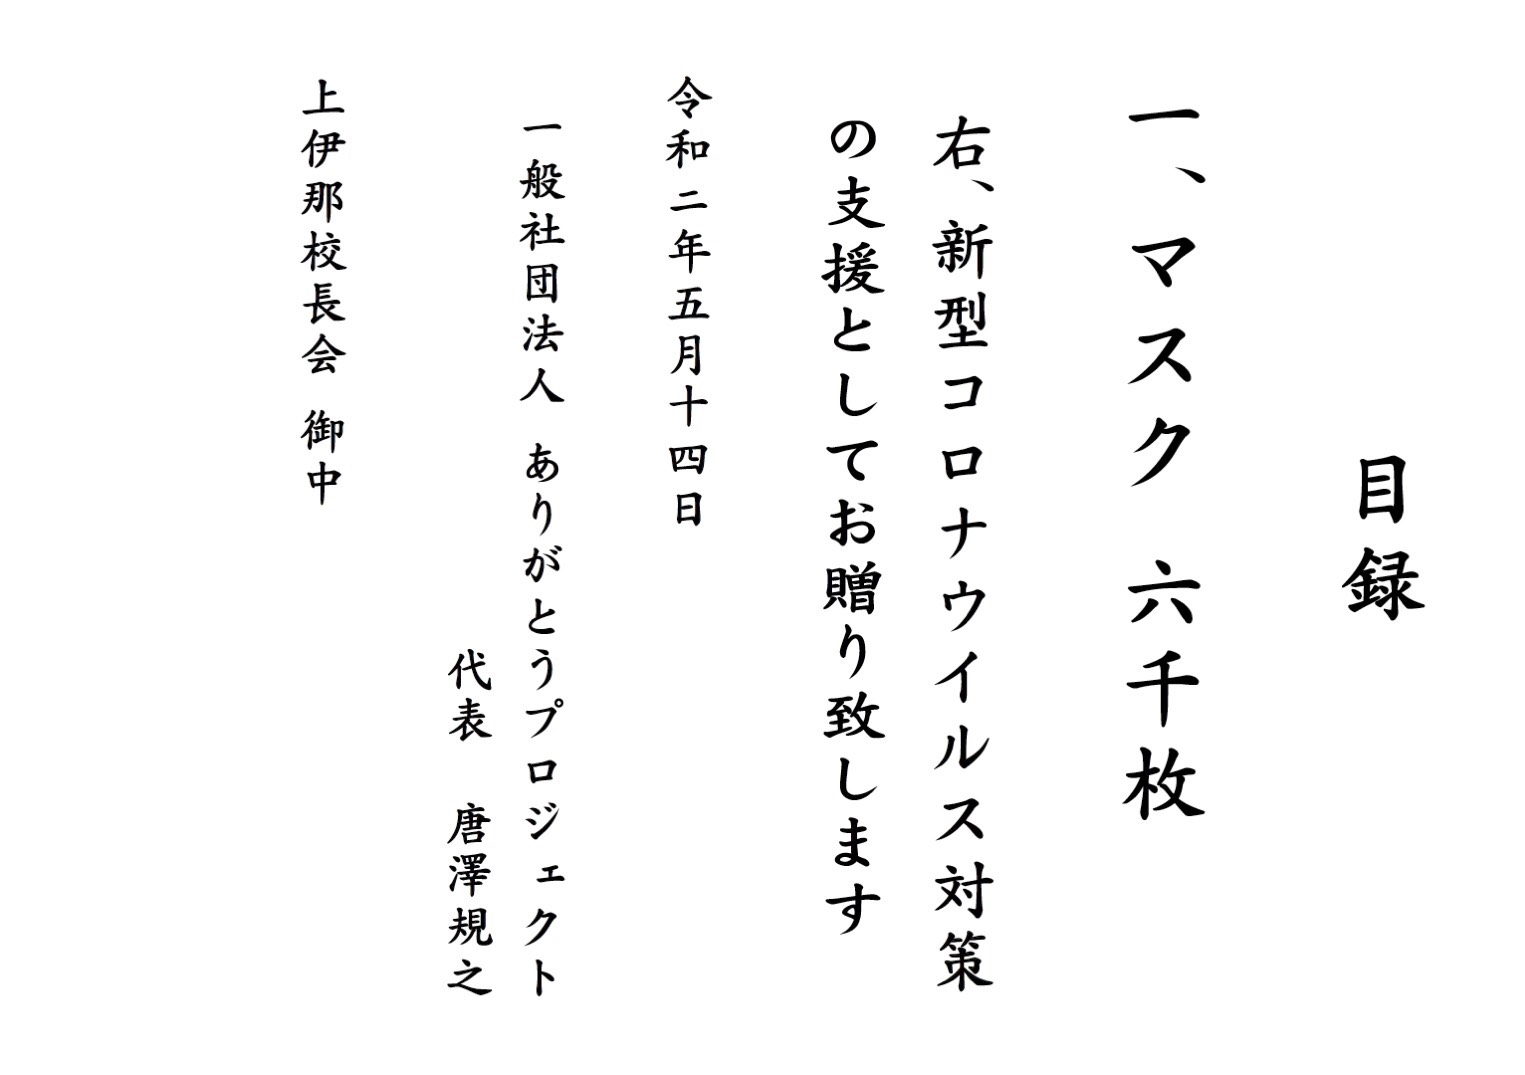 目録
一、マスク 六千枚
右、新型コロナウイルス対策
の支援としてお贈り致します
令和二年五月十四日
一般社団法人 ありがとうプロジェクト
代表 唐澤規之
上伊那校長会 御中